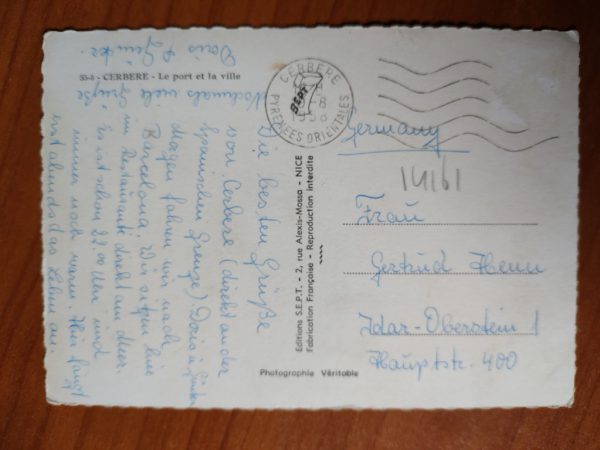 53-8 - CERBERE - Le port et la ville
Die besten Grüße
von Cerbere (direkt an der
Spanischen Grenze) Doris u. Günter
Morgen fahren wir nach
Barcelona. Wir sitzen hier
im Restaurant direkt am Meer.
Es ist schon 22.00 Uhr und
immer noch warm. Hier fängt
erst abends das Leben an.
Nochmals viele Grüße
Doris & Günter.
CERBERE
PYRENEES ORIENTALES
Editions S.E.P.T. - 2, rue Alexis-Mossa - NICE
Fabrication Française - Reproduction interdite
Germany
14161
Frau
Gertrud Henn
Idar-Oberstein 1
Hauptstr. 400
Photographie Véritable